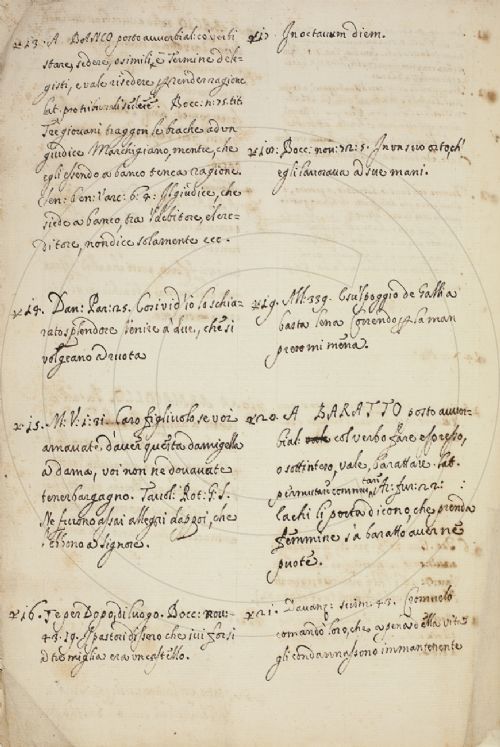 13. A BANCO posto avverbial: co verbi
stare, sedere, o simili, è Termine de le-
gisti, e vale risedere per render ragione
lat. pro tribunali sedere. Bocc: n: 75. tit
Tre giovani traggon le brache ad un
giudice Marchigiano, mentre, che
egli essendo a banco tenea ragione.
Sen: ben: Varc: 6: 4: Il giudice, che
siede a banco, tra 'l debitore, e 'l cre-
ditore, non dice solamente ecc.
14. Dan: Par: 25. Cosi vid' io lo schia-
rato splendore Venire a' due, che si
volgeano a ruota
15. M: V: 1: 31. Caro figliuolo, se voi
amavate d'aver questa damigella
a dama, voi non ne dovavate
tener bargagno. Tavol: Rot: G. S.
Ne furono assai allegri dappoi, che
l'ebbono a Signore.
16. Te per Dopo, di luogo. Bocc: nov:
43. 19. A pastori disse, che ivi forsi
a tre miglia era un castello.
17 In octavum diem.
18: Bocc: nov: 72: 5. In un suo orto, ch'
egli lavorava a sue mani.
19. All: 339. E sul poggio de Gallia
basta lena Correndo per la man
preso mi mena.
20. A BARATTO posto avver-
bial: col verbo fare espresso,
o sottinteso, vale, barattare. Lat.
permutare commutari. Ar: fur: 22:
Lachi li porta dicono, che prenda
femmine s'a baratto aver ne
puote.
21. Davanz: scism. 43. Cromuelo
comandò loro, che a pena della vita
gli condannassono immantenente